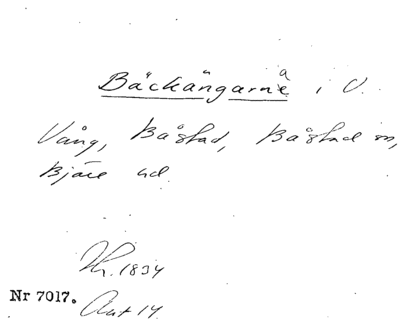 Bäckängarna i V.
Vång, Båstad, Båstad sn,
Bjäre hd.
Th. 1834
Nr 7017.
Akt 14